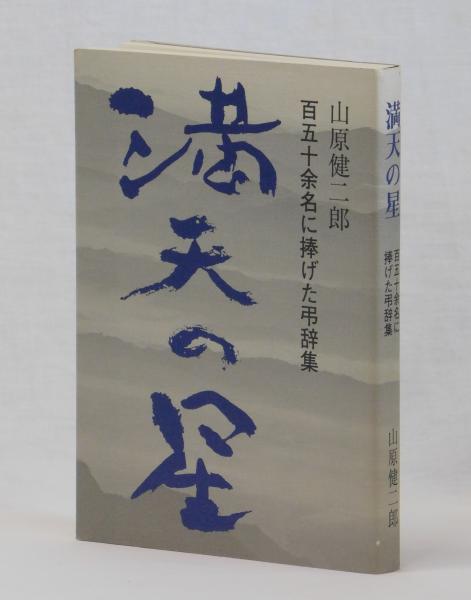 満天の星
山原健二郎
百五十余名に捧げた弔辞集
満天の星
百五十余名に
捧げた弔辞集
山原健二郎